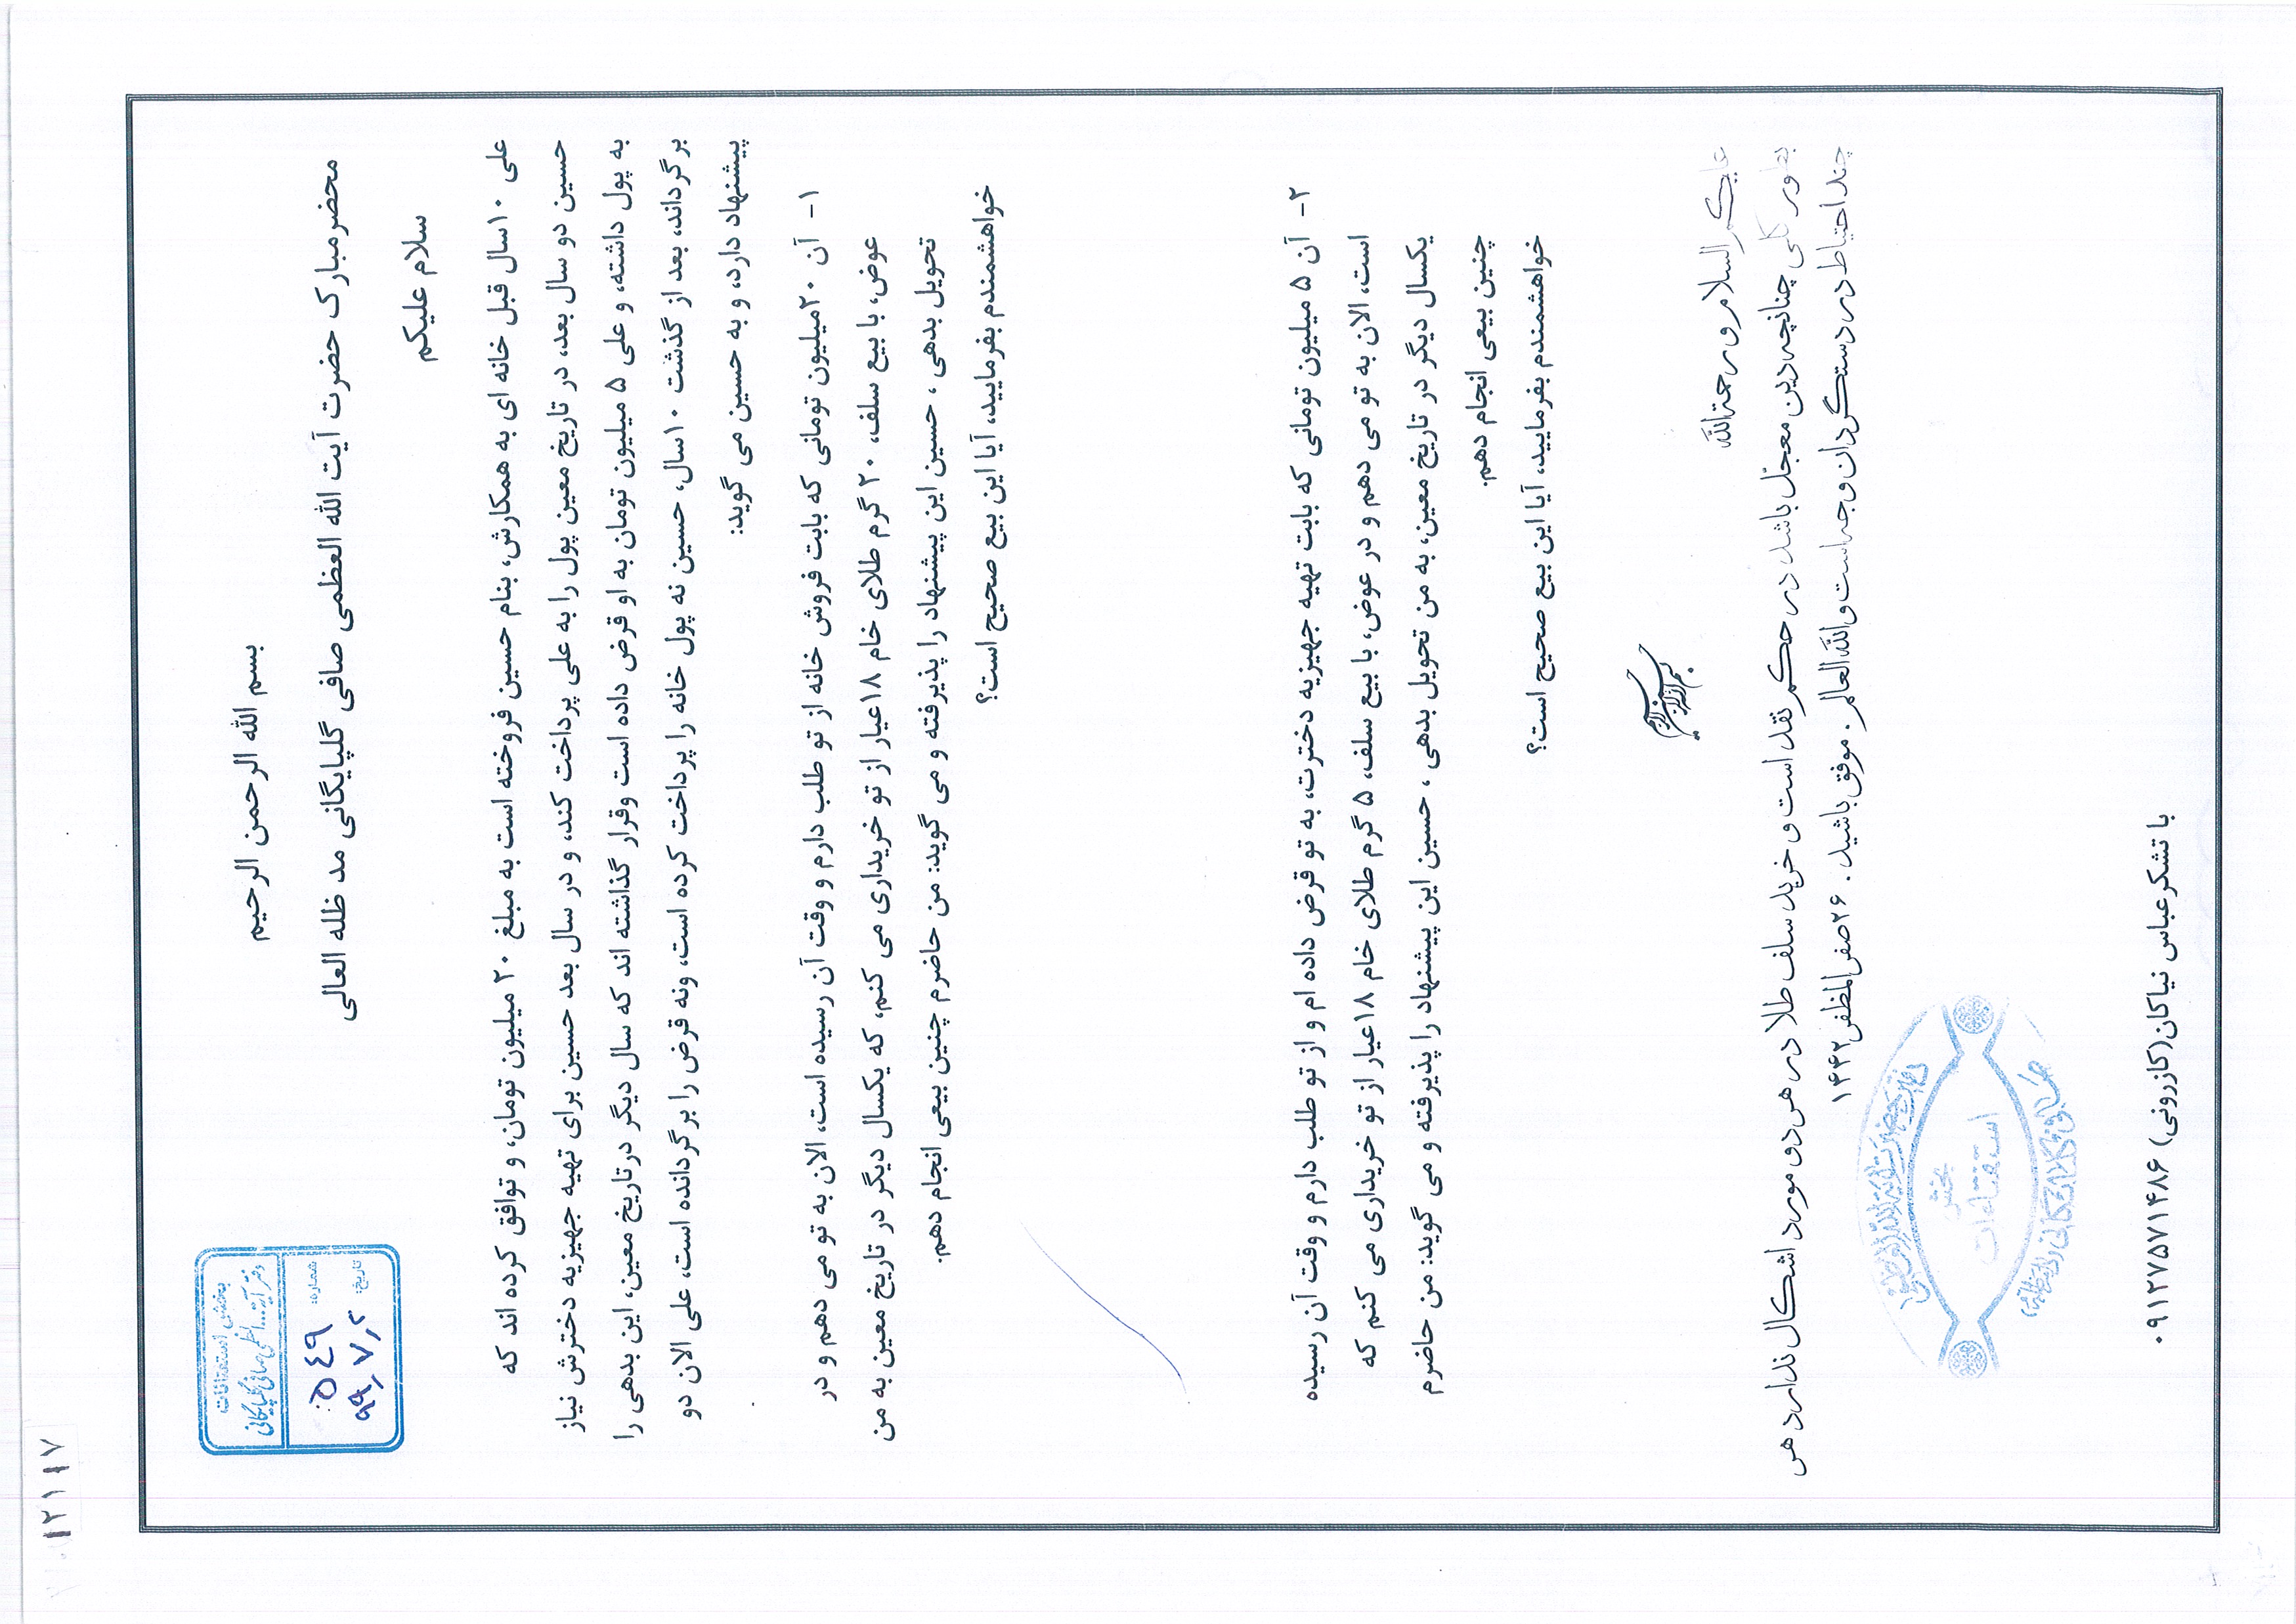 بسم الله الرحمن الرحیم
محضر مبارک حضرت آیت الله العظمی صافی گلپایگانی مد ظله العالی
سلام علیکم
علی ۱۰سال قبل خانه ای به همکارش، بنام حسین فروخته است به مبلغ ۲۰ میلیون تومان، و توافق کرده اند که
حسین دو سال بعد، در تاریخ معین پول را به علی پرداخت کند، و در سال بعد حسین برای تهیه جهیزیه دخترش نیاز
به پول داشته، و علی ۵ میلیون تومان به او قرض داده است وقرار گذاشته اند که سال دیگر درتاریخ معین، این بدهی را
برگرداند، بعد از گذشت ۱۰سال، حسین نه پول خانه را پرداخت کرده است، ونه قرض را برگردانده است، علی الان دو
پیشنهاد دارد، و به حسین می گوید:
۱- آن ۲۰میلیون تومانی که بابت فروش خانه از تو طلب دارم و وقت آن رسیده است، الان به تو می دهم و در
عوض، با بیع سلف، ۲۰ گرم طلای خام ۱۸عیار از تو خریداری می کنم، که یکسال دیگر در تاریخ معین به من
تحویل بدهی ، حسین این پیشنهاد را پذیرفته و می گوید: من حاضرم چنین بیعی انجام دهم.
خواهشمندم بفرمایید، آیا این بیع صحیح است؟
۲- آن ۵ میلیون تومانی که بابت تهیه جهیزیه دخترت، به تو قرض داده ام و از تو طلب دارم و وقت آن رسیده
است، الان به تو می دهم و در عوض، با بیع سلف، ۵ گرم طلای خام ۱۸عیار از تو خریداری می کنم که
یکسال دیگر در تاریخ معین، به من تحویل بدهی ، حسین این پیشنهاد را پذیرفته و می گوید: من حاضرم
چنین بیعی انجام دهم.
خواهشمندم بفرمایید، آیا این بیع صحیح است؟
بسم الله الرحمن الرحیم
علیکم السلام و رحمة الله
بطور کلی چنانچه دین معجل باشد در حکم نقد است و خرید سلف طلا در هر دو مورد اشکال ندارد هر
چند احتیاط در دستگردان وجه است و الله العالم. موفق باشید. ۲۶صفر المظفر ۱۴۴۲
با تشکر عباس نیاکان(کازرونی) ۰۹۱۲۷۵۷۱۴۸۶
بخش استفتائات
دفتر آیة... العظمی صافی گلپایگانی
شماره: ۵۴۹
تاریخ:
بخش
استفتائات